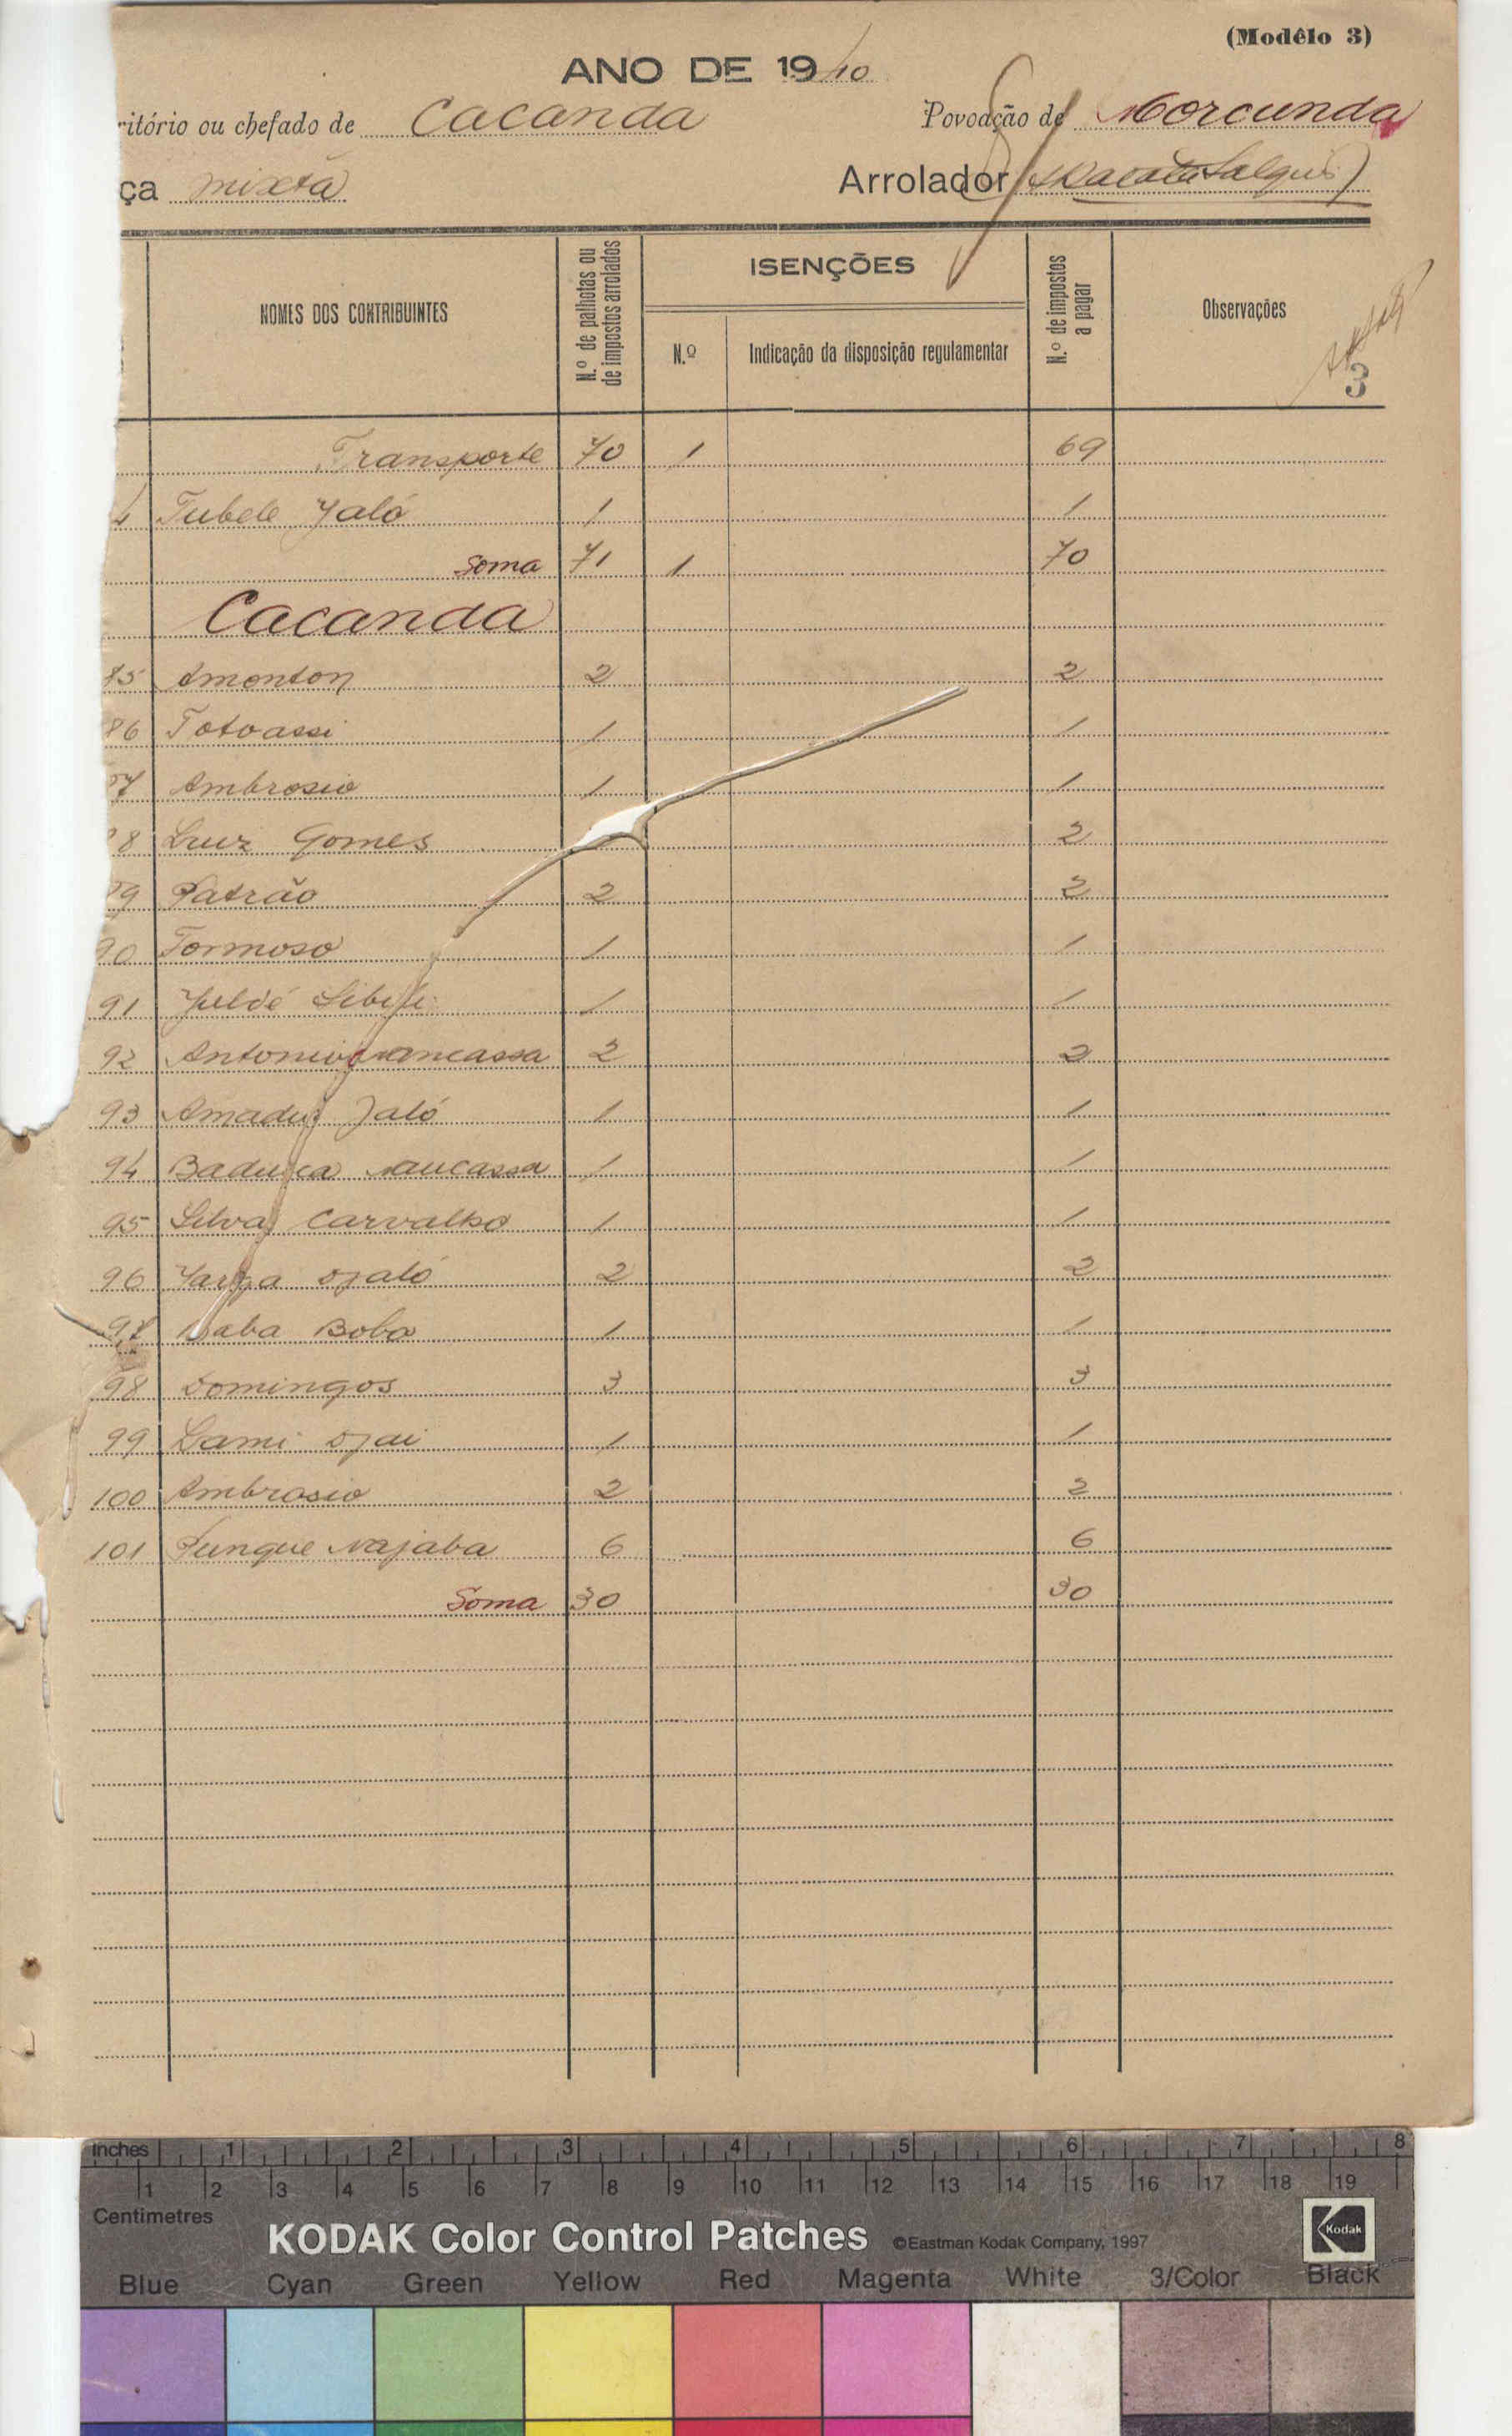 (Modêlo 3)
ANO DE 1940
ritório ou chefado de Cacanda Povoação de Morcunda
ça mixta Arrolador
NOMES DOS CONTRIBUINTES
N.º de palhotas ou de impostos arrolados
ISENÇÕES
N.º
Indicação da disposição regulamentar
N.º de impostos a pagar
Observações
3
Transporte 70 1 69
4 Tubele Jaló 1 1
Soma 71 1 70
Cacanda
85 Amonton 2 2
86 Totoassi 1 1
7 Ambrosio 1 1
8 Luiz Gomes 2
89 Patrão 2 2
90 Formoso 1 1
91 Juldé 1 1
92 Antonio Mancassa 2 2
93 Amadu Jaló 1 1
94 Baduca Mancassa 1 1
95 Silva Carvalho 1 1
96 Djaló 2 2
97 Baba Bobo 1 1
98 Domingos 3 3
99 Lami Djai 1 1
100 Ambrosio 2 2
101 Pungue Najaba 6 6
Soma 30 30
Inches 1 2 3 4 5 6 7 8
1 2 3 4 5 6 7 8 9 10 11 12 13 14 15 16 17 18 19
Centimetres
KODAK Color Control Patches ©Eastman Kodak Company, 1997 Kodak
Blue Cyan Green Yellow Red Magenta White 3/Color Black